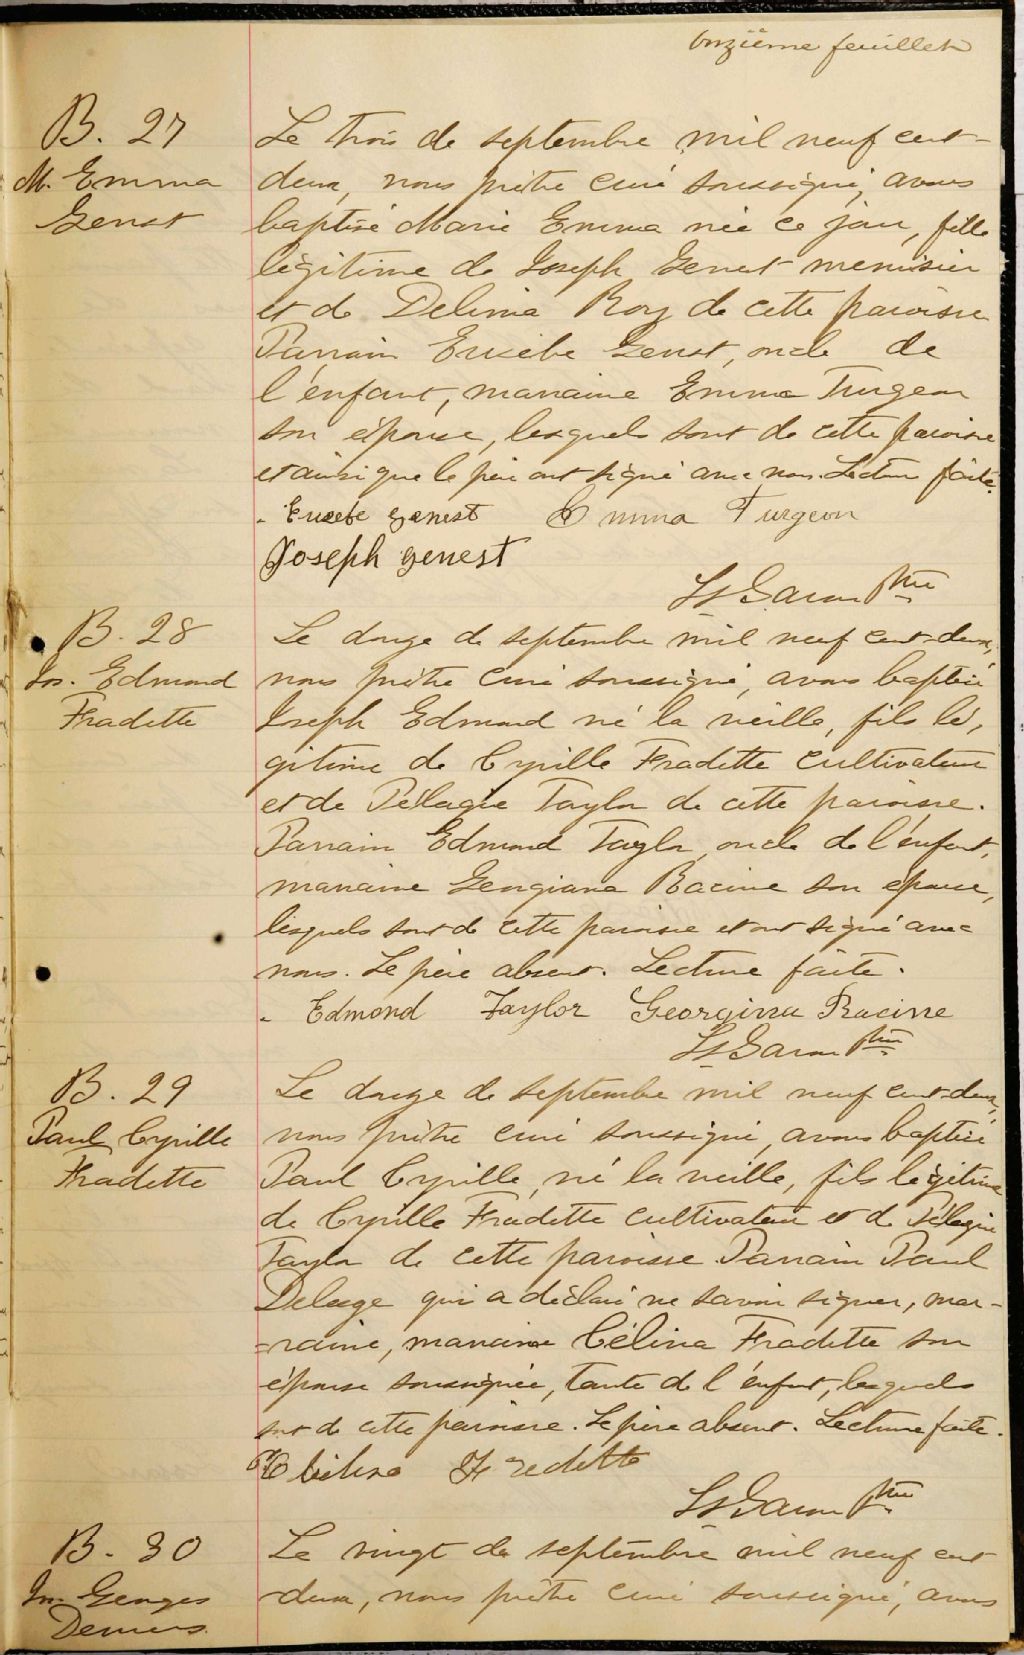 onzième feuillet
B. 27
M. Emma
Genest
Le trois de septembre mil neuf cent-
deux, nous prêtre curé soussigné, avons
baptisé Marie Emma née ce jour, fille
légitime de Joseph Genest menuisier
et de Delima Roy de cette paroisse
Parrain Eusèbe Genest, oncle de
l'enfant, marraine Emma Turgeon
son épouse, lesquels sont de cette paroisse
et ainsi que le père ont signé avec nous. Lecture faite.
Eusebe genest Emma Turgeon
Joseph genest
Ls Garon ptre
B. 28
Jos. Edmond
Fradette
Le douze de septembre mil neuf cent-deux,
nous prêtre curé soussigné, avons baptisé
Joseph Edmond né la veille, fils lé,
gitime de Cyrille Fradette cultivateur
et de Pélagie Taylor de cette paroisse.
Parrain Edmond Taylor, oncle de l'enfant,
marraine Georgiana Racine son épouse,
lesquels sont de cette paroisse et ont signé avec
nous. Le père absent. Lecture faite.
Edmond Taylor Georginna Racine
Ls Garon ptre
B. 29
Paul Cyrille
Fradette
Le douze de septembre mil neuf cent-deux,
nous prêtre curé soussigné, avons baptisé
Paul Cyrille, né la veille, fils légitime
de Cyrille Fradette cultivateur et de Pélagie
Taylor de cette paroisse Parrain Paul
Delage qui a déclaré ne savoir signer, mar-
-raine, marraine Célina Fradette son
épouse soussignée, tante de l'enfant, lesquels
sont de cette paroisse. Le père absent. Lecture faite.
Fredette
Ls Garon ptre
B. 30
Jos. Georges
Demers.
Le vingt de septembre mil neuf cent
-deux, nous prêtre curé soussigné, avons